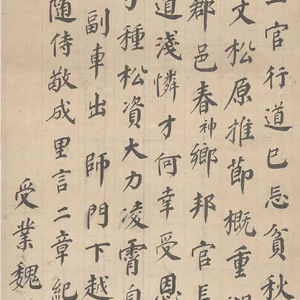 二官行道已忘貧秋
文松原推節概重
郡邑春神鄉邦官長
道淺憐才何幸受恩
種松資大力凌霄
副車出 師門下越
隨侍敬成里言二章紀
受業魏